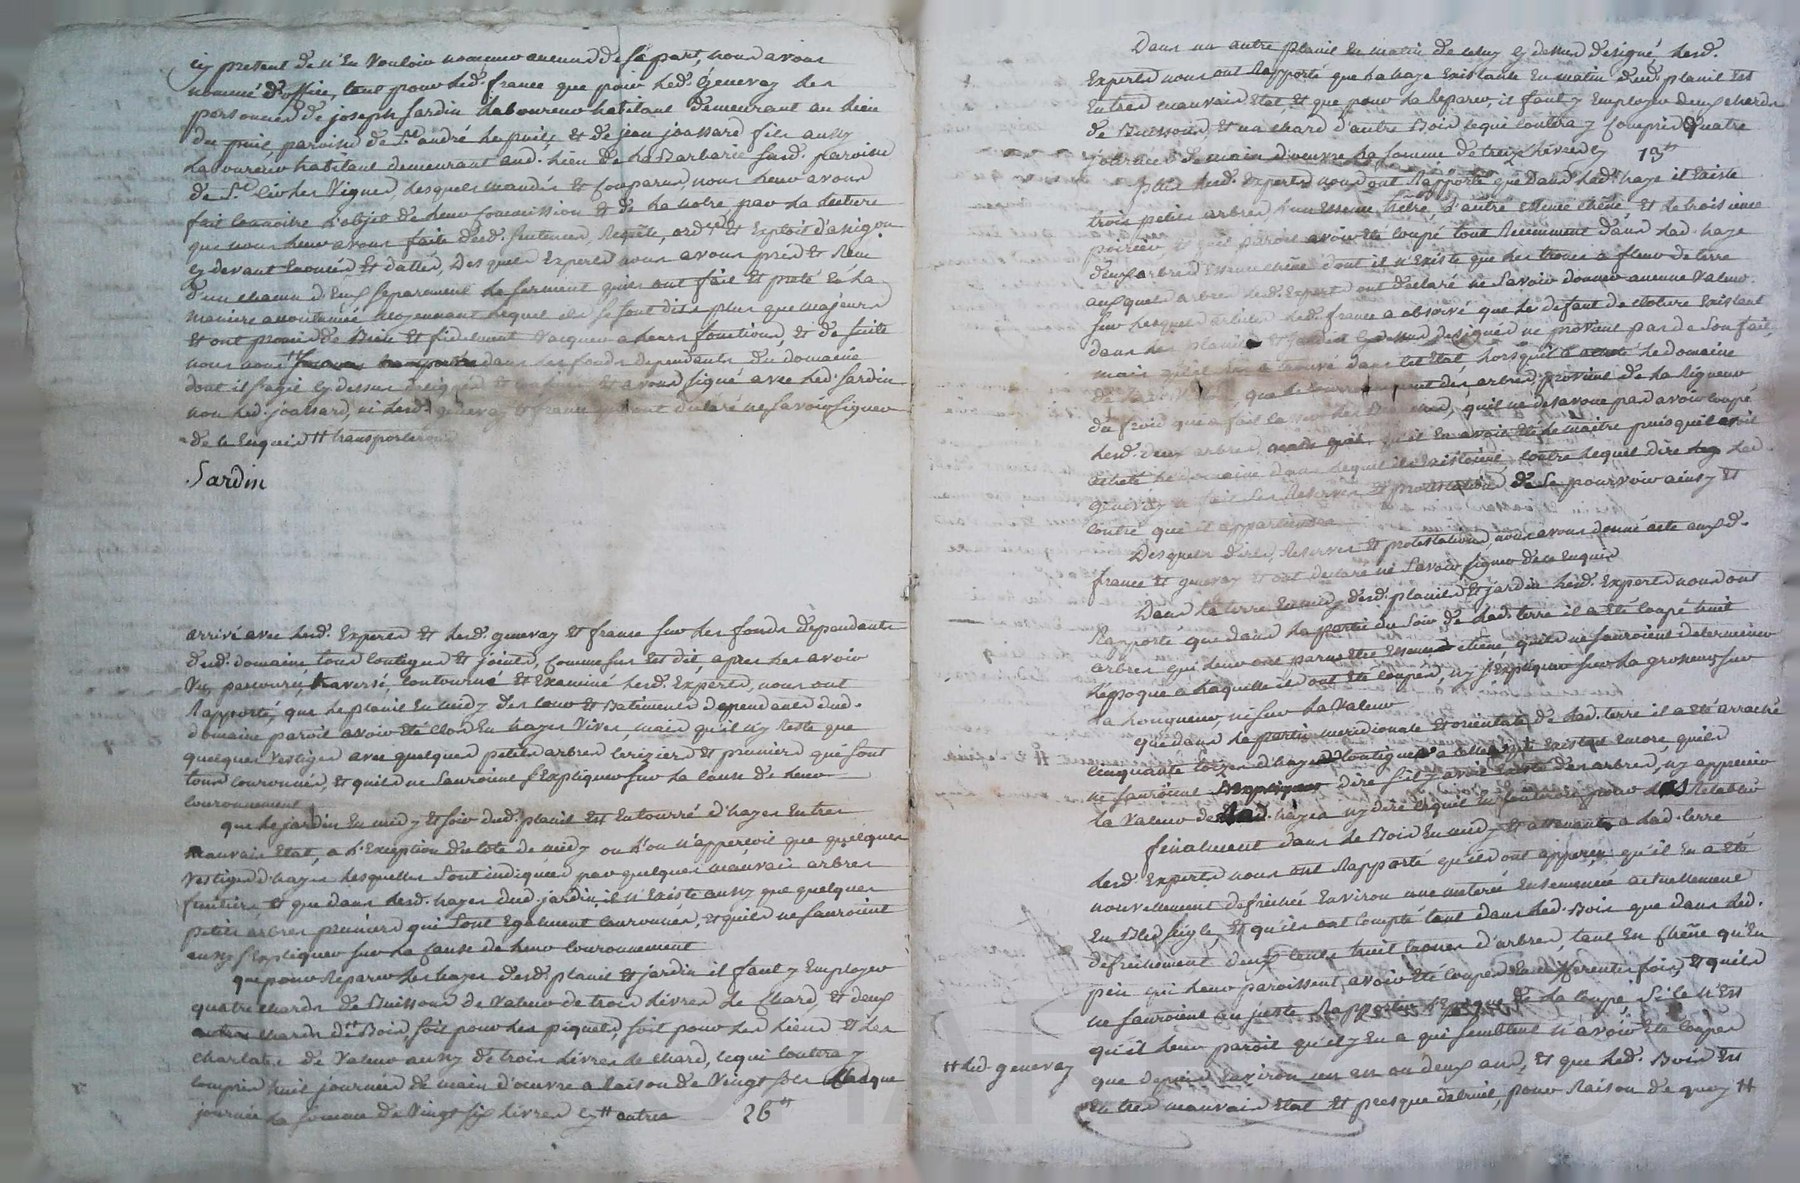 cy present de n'En Vouloir nommer aucuns de sa part, nous avons
nommé d'office, tant pour led. france que pour led. Genevay les
personnes de joseph Sardin Laboureur habitant demeurant au lieu
du puis paroisse de St. andré le puis, et de jean joassard fils aussy
Laboureur habitant demeurant aud. lieu de la Barbarie susd. paroisse
de St. les Vignes, lesquels mandés et comparus, nous leur avons
fait connoitre l'objet de leur commission et de la notre par la lecture
que nous leur avons faite desd. Sentences, Requête, ordce. et Exploit d'assigon
cy devant Enoncés et dattés, Desquels Experts nous avons pris et Reçu
d'un chacun d'Eux separement le serment qu'ils ont fait et preté En la
maniere accoutumée moyennant lequel ils se sont dits plus que majeurs
Et ont promis de Bien et fidelement vacquer a leurs fonctions, et de suitte
nous nous dans les fonds dependants du domaine
dont il s'agit cy dessus et avons signé avec led. Sardin
non led. joassard, ni lesd. genevay et france déclaré ne savoir signer
de ce Enquis # transporterons
Sardin
arrivé avec lesd. Experts et lesd. genevay et france sur les fonds dependants
dud. domaine tous contigus et joints, comme sus Est dit, apres les avoir
Vus, parcouru, traversé, contourné et Examiné lesd. Experts, nous ont
Rapporté, que le planil En midy des cour et Batiments dependants dud.
domaine paroit avoir été clos En hayes Vives, mais qu'il n'y Reste que
quelques Vestiges avec quelques petits arbres cerisiers et pruniers qui sont
tous couronnés, et qu'ils ne sauroient s'Expliquer sur la cause de leur
couronnement
que le jardin En midy et soir dud. planil Est Entourré d'hayes En tres
mauvais Etat, a l'Exception du coté de midy ou l'on n'apperçoit que quelques
Vestiges d'hayes lesquelles sont indiquées par quelques mauvais arbres
fruitiers, et que dans lesd. hayes dud. jardin, il n'Existe aussy que quelques
petits arbres pruniers qui sont Egalement couronnés, et qu'ils ne sauroient
aussy s'Expliquer sur la cause de leur couronnement
que pour Reparer les hayes desd. planil et jardin il faut y Employer
quatre chards de Buissons de Valeur de trois Livres le chard, et deux
chards de Bois, soit pour les piquets, soit pour les liens et les
de Valeur aussy de trois livres le chard, ce qui coutera y
compris huit journées de main d'œuvre a Raison de Vingt sols chaque
journée la somme de Vingt six livres cy # autres 26#
Dans un autre planil En matin de celuy cy dessus désigné, lesd.
Experts nous ont Rapporté que la haye Existante En matin dud. planil Est
En tres mauvais Etat, et que pour la Reparer, il faut y Employer deux chards
de Buissons et un chard d'autre Bois ce qui coutera y compris quatre
journées de main d'œuvre la somme de treize livres cy 13#
plus lesd. Experts nous ont Rapporté que dans lad. haye il Existe
trois petits arbres, l'un Essence frêne, l'autre Essence chêne et le troisieme
poirier et qu'il paroit avoir été coupé tout Recemment dans lad. haye
deux arbres Essence chêne dont il n'Existe que les troncs a fleur de terre
auxquels arbres lesd. Expert ont déclaré ne savoir donner aucune Valeur
Sur lesquels articles led. france a observé que le defaut de cloture Existant
dans les planils et jardin cy dessus designés ne provient pas de son fait,
mais qu'il les a trouvé dans cet Etat lorsqu'il a le domaine
que le couronnement des arbres provient de la Rigueur
du froid que a fait qu'il ne desavoue pas avoir coupé
lesd. deux arbres, qu'il En avoit Eté le maitre puisqu'il avoit
acheté le domaine dans lequel ils Existoient contre lequel dire led.
genevay a fait ses Reserves et protestations de se pourvoir ainsy et
contre qui il appartiendra
Desquels dires, Reserves et protestations, nous avons donné acte auxd.
france et genevay et ont declaré ne savoir signer de ce Enquis
Dans la terre En midy desd. planils et jardin lesd. Experts nous ont
Rapporté que dans la partie du soir de lad. terre il a été coupé huit
arbres qui leur ont paru être Essence chêne, qu'ils ne sauroient determiner
l'epoque a laquelle ils ont Eté coupés, n'y s'Expliquer sur la grosseur, sur
la longueur, ni sur la Valeur
que dans la partie meridionale et orientale de lad. terre il a été arraché
Cinquante toises d'hayes contigues a celles qui Existent Encore qu'ils
ne sauroient dire s'il y avoit Existé des arbres, n'y apprecier
la Valeur de lad. hayes n'y dire ce qu'il En couteroit pour les Retablir
finalement dans le Bois En midy et attenant a lad. terre
lesd. Experts nous ont Rapporté qu'ils ont apperçu qu'il En a été
nouvellement defriché Environ une meterée Ensemencée actuellement
En Bled seigle, et qu'ils ont compté tant dans led. Bois que dans led.
defrichement deux cents huit troncs d'arbres, tant En chêne qu'En
pin qui leur paroissent avoir été coupés En differentes fois, et qu'ils
ne sauroient au juste Rapporter l'Epoque de la coupe, si ce n'Est
qu'il leur paroit qu'il y En a qui semblent n'avoir été coupés
que depuis Environ un an ou deux ans, et que led. Bois Est
En tres mauvais Etat et presque detruit, pour Raison de quoy #
# led. genevay